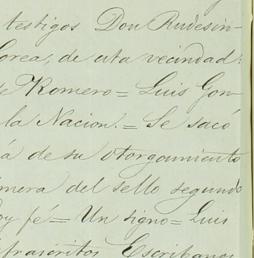 testigos Don Rudesin-
orea, de esta vecindad:
de Romero = Luis Gon
la Nacion. = Se sacó
á de su otorgamiento
imera del sello segundo
oy fé = Un signo = Luis
frascritos Escribanos